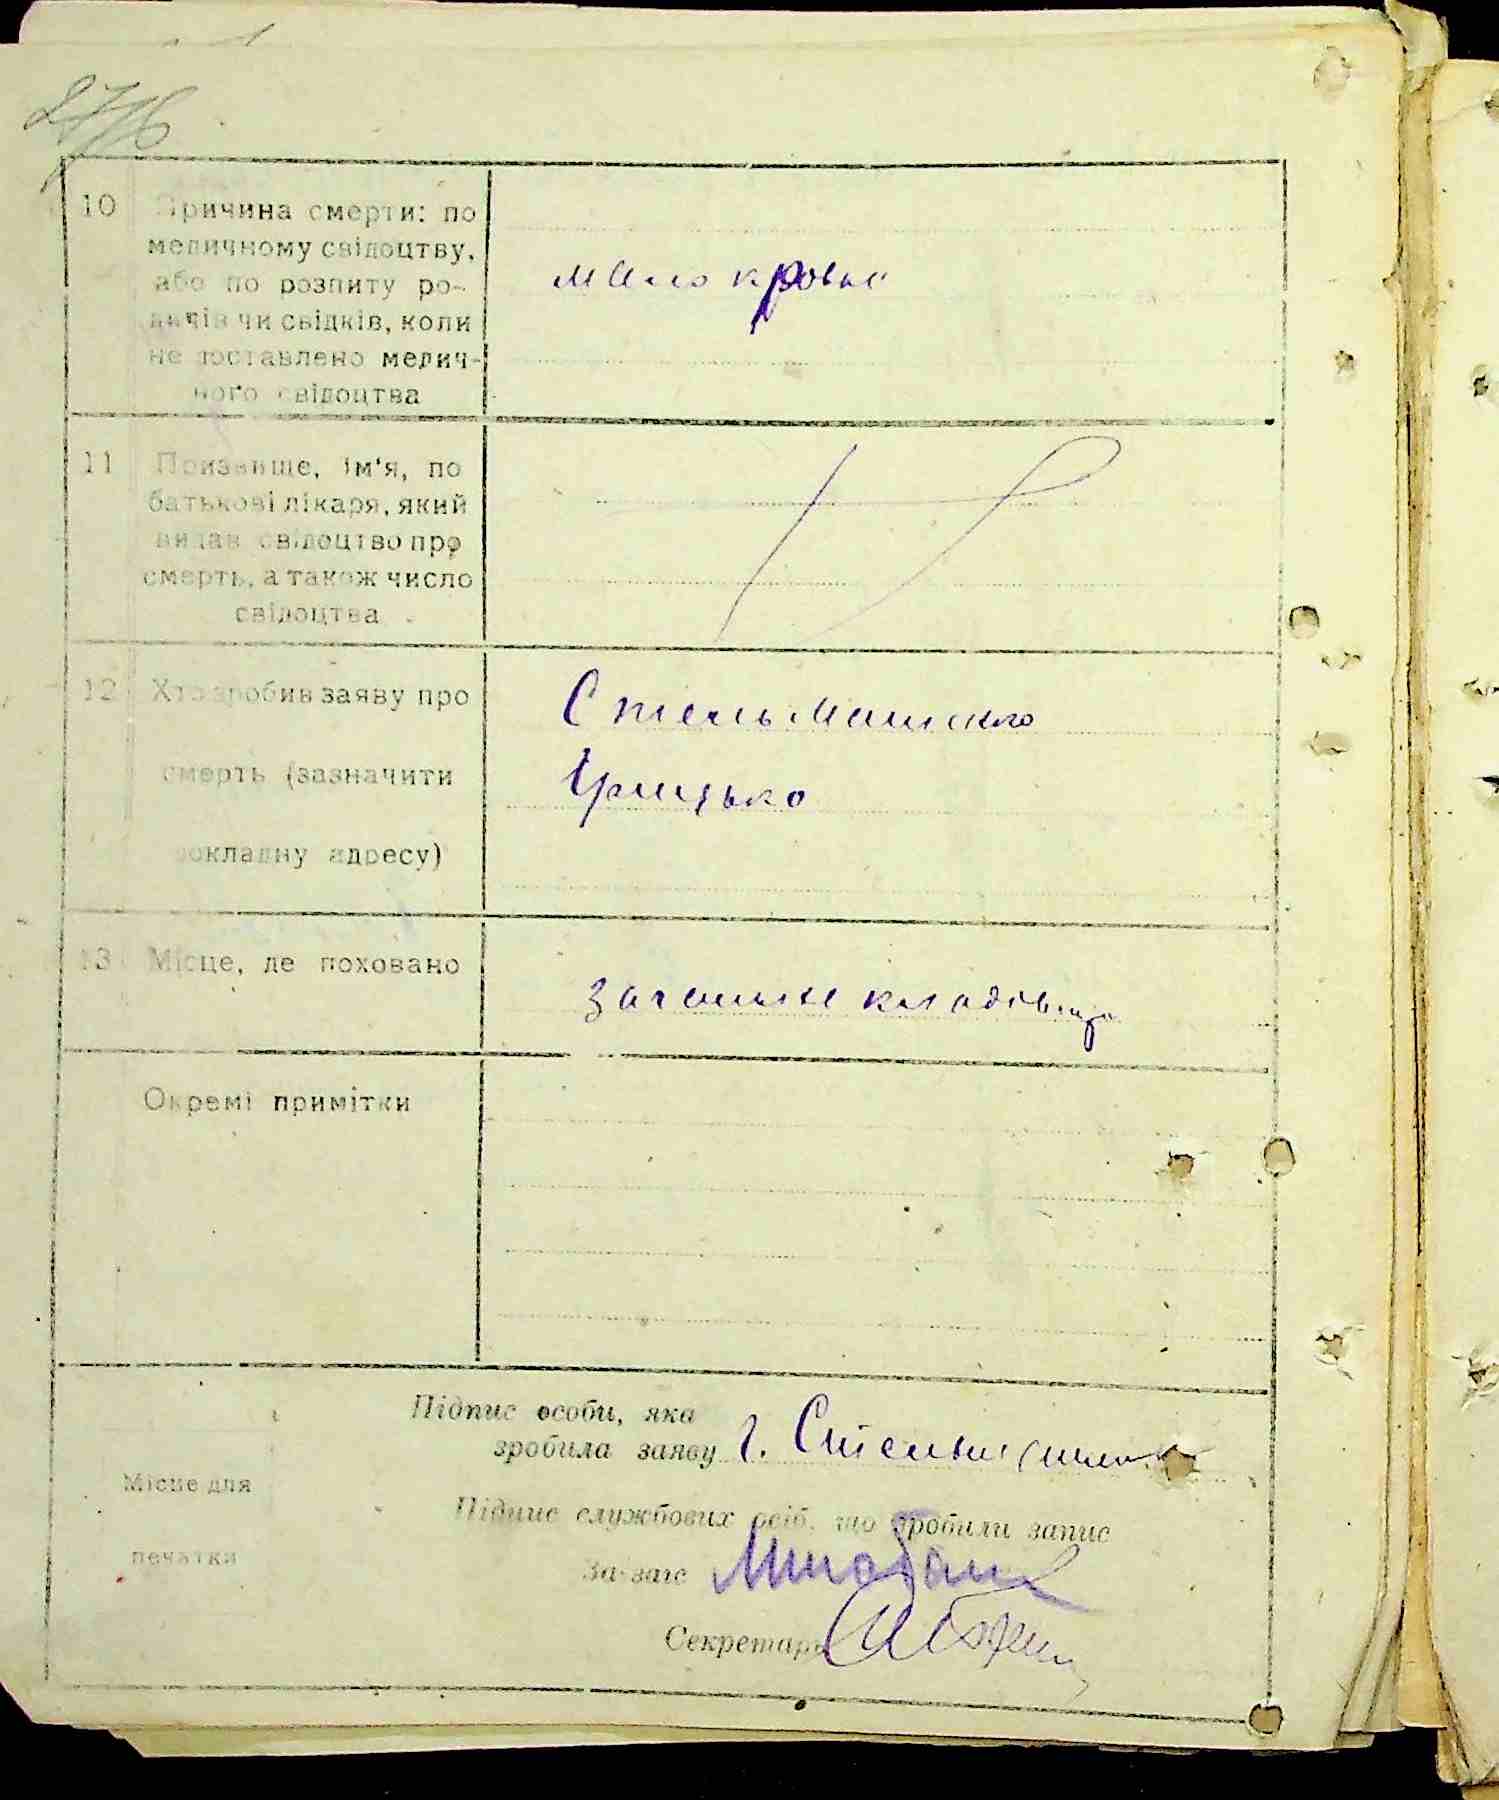 10 Причина смерти: по
медичному свідоцтву,
або по розпиту ро-
дичів чи свідків, коли
не доставлено медич-
ного свідоцтва
мало кровье
11 Призвище, ім'я, по
батькові лікаря, який
видав свідоцтво про
смерть, а також число
свідоцтва
12 Хто зробив заяву про
смерть (зазначити
докладну адресу)
Стельмашенко
Грицько
13 Місце, де поховано
загальне кладовище
Окремі примітки
Підпис особи, яка
зробила заяву Г. Стельмашенко
Місце для
печатки
Підпис службових осіб, що зробили запис
Зав загс
Секретарь